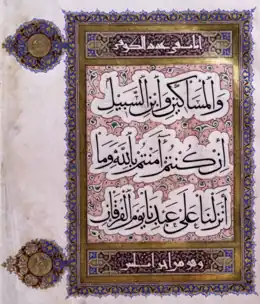 وَالْمَسَاكِينِ وَابْنِ السَّبِيلِ
إِن كُنتُمْ آمَنتُم بِاللَّهِ وَمَا
أَنزَلْنَا عَلَى عَبْدِنَا يَوْمَ الْفُرْقَانِ